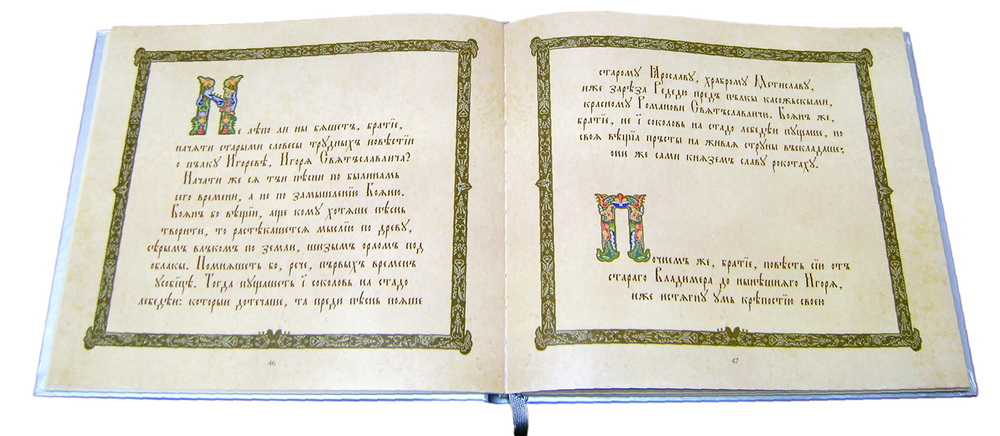 Не лѣпо ли ны бяшетъ, братїе,
начяти старыми словесы трудныхъ повѣстїй
о пълку Игоревѣ, Игоря Святъславлича?
Начати же ся тъй пѣсни по былинамъ
сего времени, а не по замышленїю Бояню.
Боянъ бо вѣщїй, аще кому хотяше пѣснь
творити, то растѣкашется мыслїю по древу,
сѣрымъ вълкомъ по земли, шизымъ орломъ под
облакы. Помняшеть бо, рече, първыхъ временъ
усобіцѣ. Тогда пущашеть ї соколовь на стадо
лебедѣи: которыи дотечаше, та преди пѣснь пояше
46
старому Ярославу, храброму Мстиславу,
иже зарѣза Редедю предъ пълкы касожьскыми,
красному Романови Святъславличю. Боян же,
братїе, не ї соколовь на стадо лебедѣи пущаше, но
своя вѣщїа пръсты на живая струны въскладаше;
они же сами княземъ славу рокотаху.
Почнемъ же, братїе, повѣсть сїю отъ
стараго Владимера до нынѣшняго Игоря,
иже истягну умь крѣпостїю своею
47